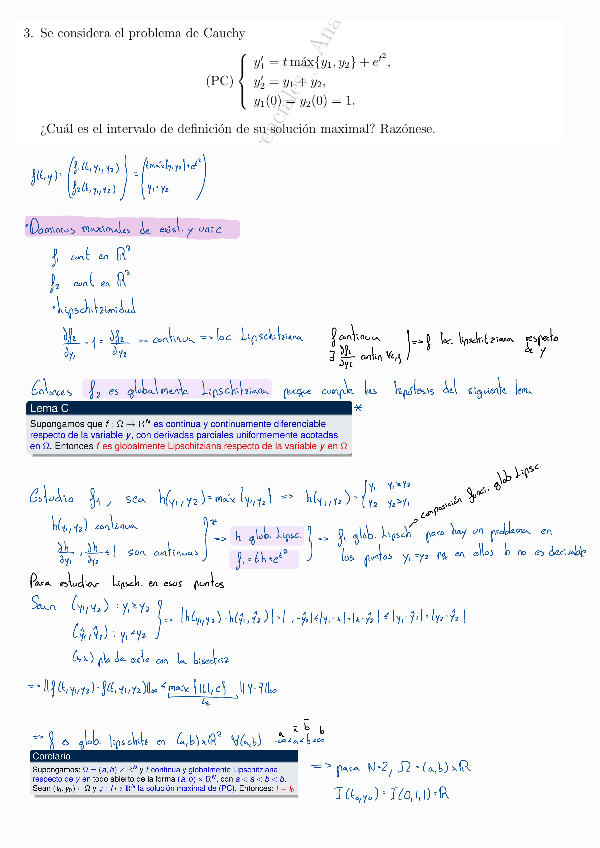 3. Se considera el problema de Cauchy
(PC) { y₁′ = t máx{y₁, y₂} + e^{t²},
y₂′ = y₁ + y₂,
y₁(0) = y₂(0) = 1.
¿Cuál es el intervalo de definición de su solución maximal? Razónese.
f(t,y) = (f₁(t,y₁,y₂) f₂(t,y₁,y₂)) = (t max{y₁,y₂}+e^{t²} y₁+y₂)
• Dominios maximales de exist. y unic
f₁ cont en ℝ³
f₂ cont en ℝ³
• lipschitzianidad
∂f₂/∂y₁ = 1 = ∂f₂/∂y₂ continua => loc. Lipschitziana
f continua
∃ ∂fᵢ/∂yⱼ contin ∀i,j } => f loc. lipschitziana respecto de y
Entonces f₂ es globalmente Lipschitziana porque cumple las hipótesis del siguiente lema
Lema C
*
Supongamos que f : Ω → ℝᴺ es continua y continuamente diferenciable
respecto de la variable y, con derivadas parciales uniformemente acotadas
en Ω. Entonces f es globalmente Lipschitziana respecto de la variable y en Ω
composición func. glob Lipsc.
Estudio f₁, sea h(y₁,y₂)=max{y₁,y₂} => h(y₁,y₂) = { y₁ y₁≥y₂ y₂ y₂>y₁
h(y₁,y₂) continua
∂h/∂y₁, ∂h/∂y₂ ≤ 1 son continuas } * => h glob. Lipsc. f₁ = th+e^{t²} } => f₁ glob. Lipsch pero hay un problema en
los puntos y₁=y₂ pq en ellos h no es derivable
Para estudiar Lipsch. en esos puntos
Sean (y₁,y₂) : y₁≥y₂
(ŷ₁,ŷ₂) : y₁<y₂ } => |h(y₁,y₂)-h(ŷ₁,ŷ₂)| = |y₁-ŷ₂| ≤ |y₁-x|+|x-ŷ₂| ≤ |y₁-ŷ₁|+|y₂-ŷ₂|
(x,x) pto de corte con la bisectriz
=> ||f(t,y₁,y₂)-f(t,ŷ₁,ŷ₂)||∞ ≤ max{|t|,c} ||y-ŷ||∞
=> f es glob. lipschitz en (a,b)xℝ² ∀(a,b) -∞<a<b<∞
Corolario
Supongamos: Ω = (a, b) × ℝᴺ y f continua y globalmente Lipschitziana
respecto de y en todo abierto de la forma (ā, b̄) × ℝᴺ, con a < ā < b̄ < b.
Sean (t₀, y₀) ∈ Ω y φ : I → ℝᴺ la solución maximal de (PC). Entonces: I =
=> para N=2, Ω = (a,b)xℝ
I(t₀,y₀) = I(0,1,1) = ℝ